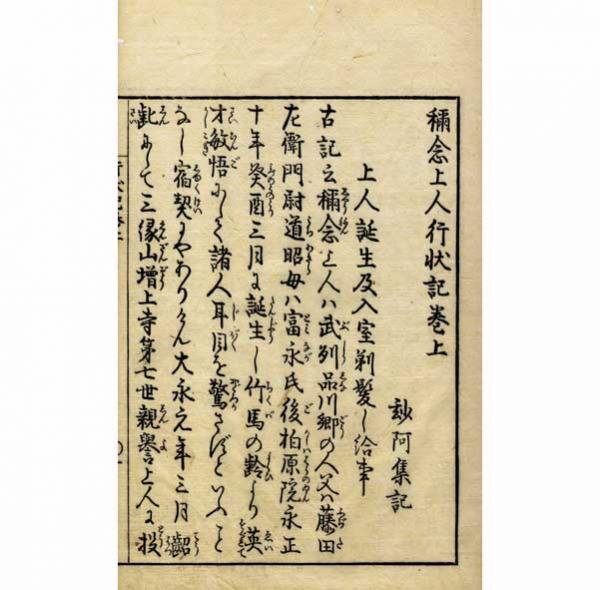 稱念上人行狀記卷上
玅阿集記
上人誕生及入室剃髮し給事
古記云稱念上人ハ武州品川郷の人父ハ藤田
左衛門尉道昭母ハ富永氏後柏原院永正
十年癸酉三月に誕生し竹馬の齡より英
才敏悟にして諸人耳目を驚さずといふこと
なし宿契にやありけん大永元年三月齠
齔にして三縁山增上寺第七世親譽上人に投